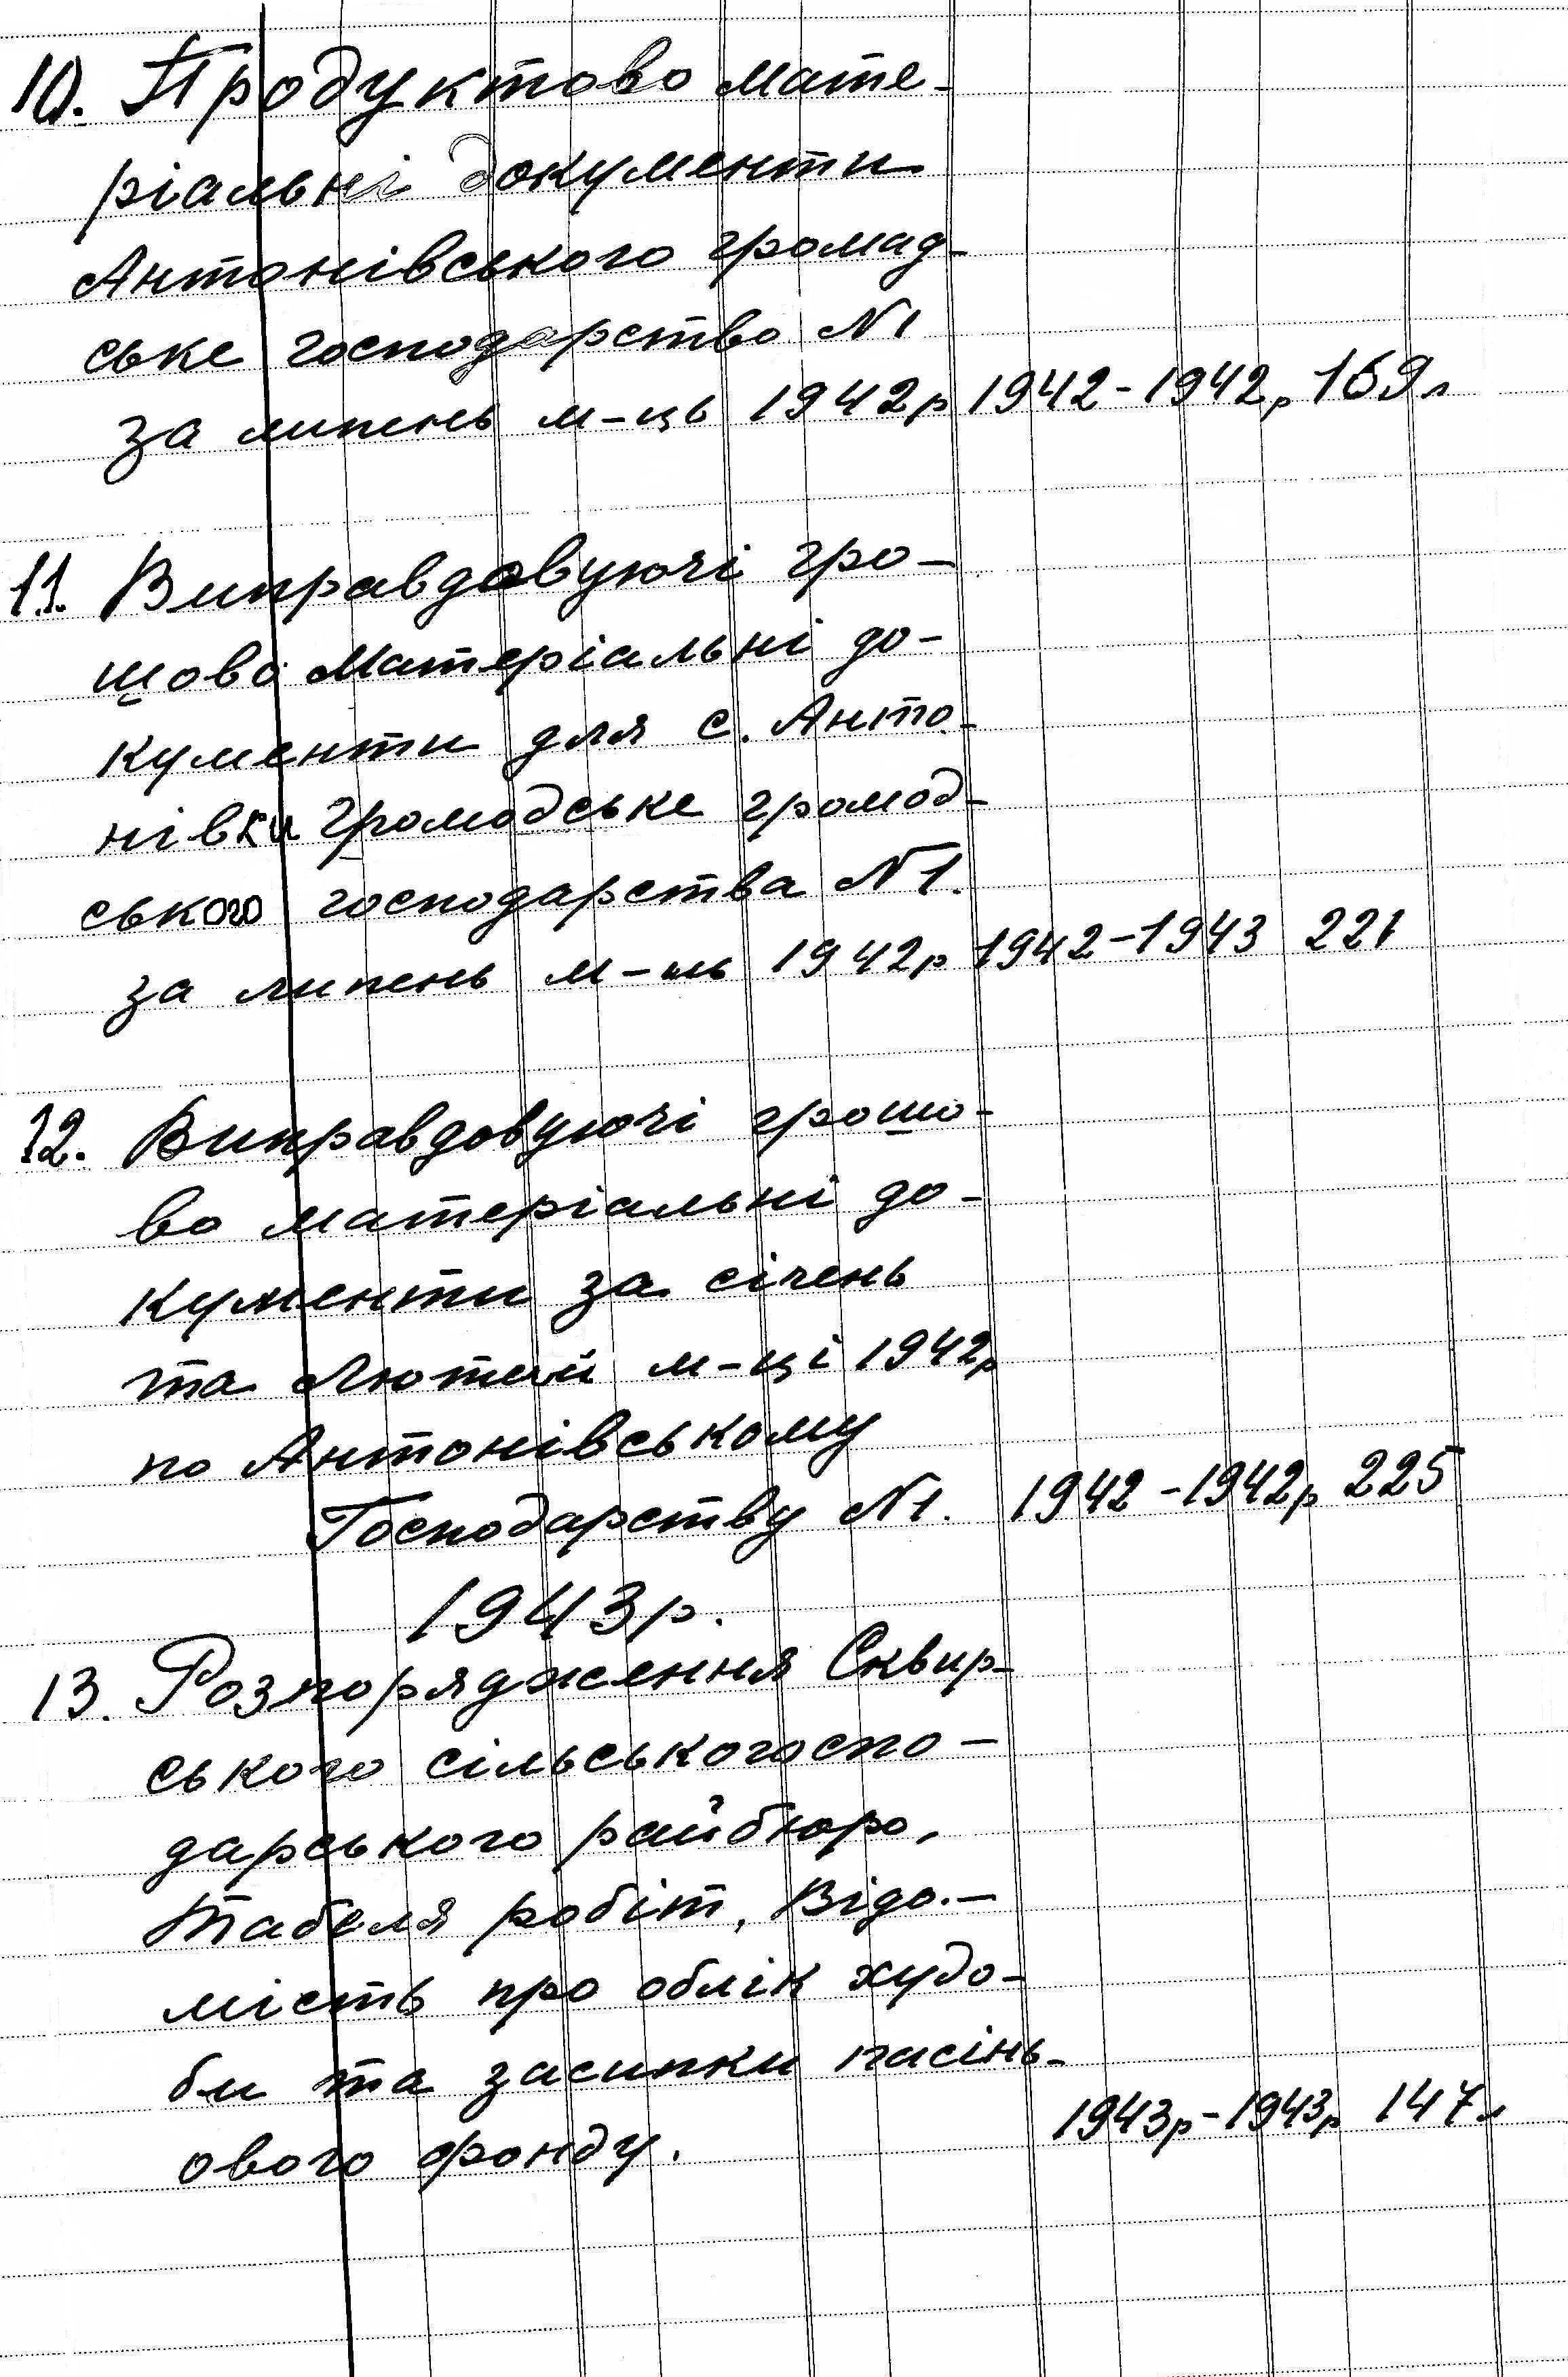 10. Продуктово мате-
ріальні документи
Антонівського громад-
ське господарство №1
за липень м-ць 1942р 1942-1942р 169л
11. Виправдовуючі гро-
шово матеріальні до-
кументи для с. Анто-
нівки громадське громад-
ського господарства №1.
за липень м-ць 1942р 1942-1943 221
12. Виправдовуючі грошо-
во матеріальні до-
кументи за січень
та лютий м-ці 1942р
по Антонівському
Господарству №1. 1942-1942р 225
1943р.
13. Розпорядження Сквир-
ського сільськогоспо-
дарського райбюро,
табеля робіт, Відо-
мість про облік худо-
би та засипки насінь-
ового фонду. 1943р-1943р 147л